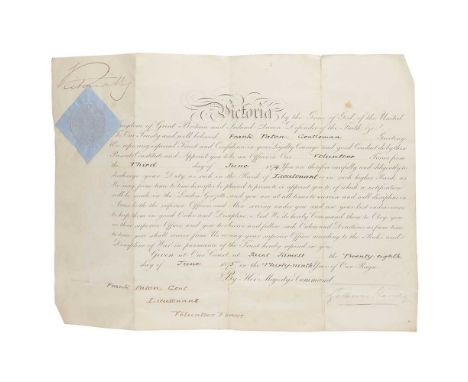 Victoria by the Grace of God of the United
Kingdom of Great Britain and Ireland Queen Defender of the Faith &c
To Our Trusty and well beloved Frank Paton Gentleman Greeting
We reposing especial Trust and Confidence in your Loyalty Courage and good Conduct do by these
Presents Constitute and Appoint you to be an Officer in Our Volunteer Forces from
the Third day of June 1874 You are therefore carefully and diligently to
discharge your Duty as such in the Rank of Lieutenant or in such higher Rank as
We may from time to time hereafter be pleased to promote or appoint you to of which a notification
will be made in the London Gazette and you are at all times to exercise and well discipline in
Arms both the inferior Officers and Men serving under you and use your best endeavours
to keep them in good Order and Discipline And We do hereby Command them to Obey you
as their superior Officer and you to observe and follow such Orders and Directions as from time
to time you shall receive from Us or any your superior Officer according to the Rules and
Discipline of War in pursuance of the Trust hereby reposed in you
Given at Our Court at Saint James's the Twenty eighth
day of June 1875 in the Thirty Ninth Year of Our Reign
By Her Majesty's Command
Frank Paton Gent
Lieutenant
Volunteer Forces